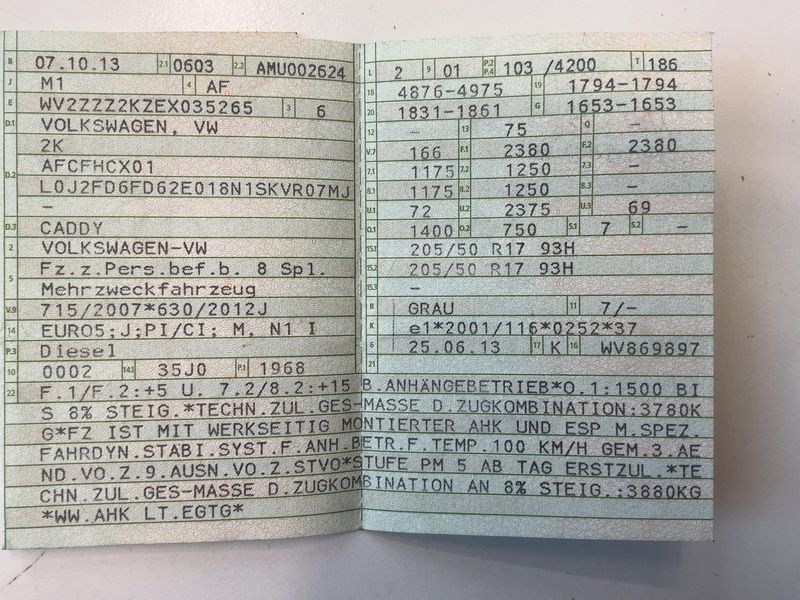 B 07.10.13 2.1 0603 2.2 AMU002624
J M1 4 AF
E WV2ZZZ2KZEX035265 3 6
D.1 VOLKSWAGEN, VW
2K
D.2 AFCFHCX01
L0J2FD6FD62E018N1SKVR07MJ
–
D.3 CADDY
2 VOLKSWAGEN-VW
5 Fz.z.Pers.bef.b. 8 Spl.
Mehrzweckfahrzeug
V.9 715/2007*630/2012J
14 EURO5;J;PI/CI; M, N1 I
P.3 Diesel
10 0002 14.1 35J0 P.1 1968
L 2 9 01 P.2 P.4 103 /4200 T 186
18 4876-4975 19 1794-1794
20 1831-1861 G 1653-1653
12 – 13 75 Q –
V.7 166 F.1 2380 F.2 2380
7.1 1175 7.2 1250 7.3 –
8.1 1175 8.2 1250 8.3 –
U.1 72 U.2 2375 U.3 69
O.1 1400 O.2 750 S.1 7 S.2 –
15.1 205/50 R17 93H
15.2 205/50 R17 93H
15.3 –
R GRAU 11 7/–
K e1*2001/116*0252*37
6 25.06.13 17 K 16 WV869897
21
22 F.1/F.2:+5 U. 7.2/8.2:+15 B.ANHÄNGEBETRIEB*O.1:1500 BI
S 8% STEIG.*TECHN.ZUL.GES-MASSE D.ZUGKOMBINATION:3780K
G*FZ IST MIT WERKSEITIG MONTIERTER AHK UND ESP M.SPEZ.
FAHRDYN.STABI.SYST.F.ANH.BETR.F.TEMP.100 KM/H GEM.3.AE
ND.VO.Z.9.AUSN.VO.Z.STVO*STUFE PM 5 AB TAG ERSTZUL.*TE
CHN.ZUL.GES-MASSE D.ZUGKOMBINATION AN 8% STEIG.:3880KG
*WW.AHK LT.EGTG*